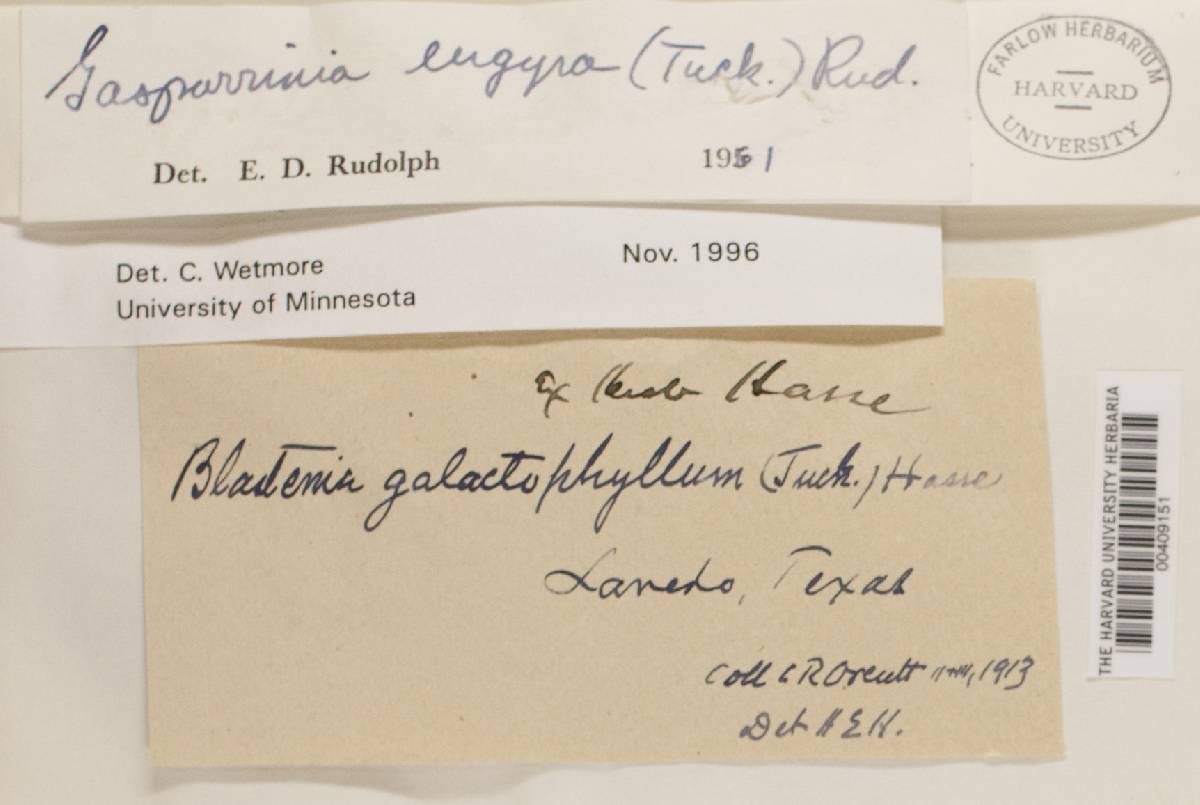 Gasparrinia eugyra (Tuck.) Rud.
Det. E. D. Rudolph 1951
FARLOW HERBARIUM
HARVARD
UNIVERSITY
Det. C. Wetmore Nov. 1996
University of Minnesota
Ex Herb Hasse
Blastenia galactophyllum (Tuck.) Hasse
Laredo, Texas
Coll C R Orcutt 1913
Det H E H.
THE HARVARD UNIVERSITY HERBARIA
00409151